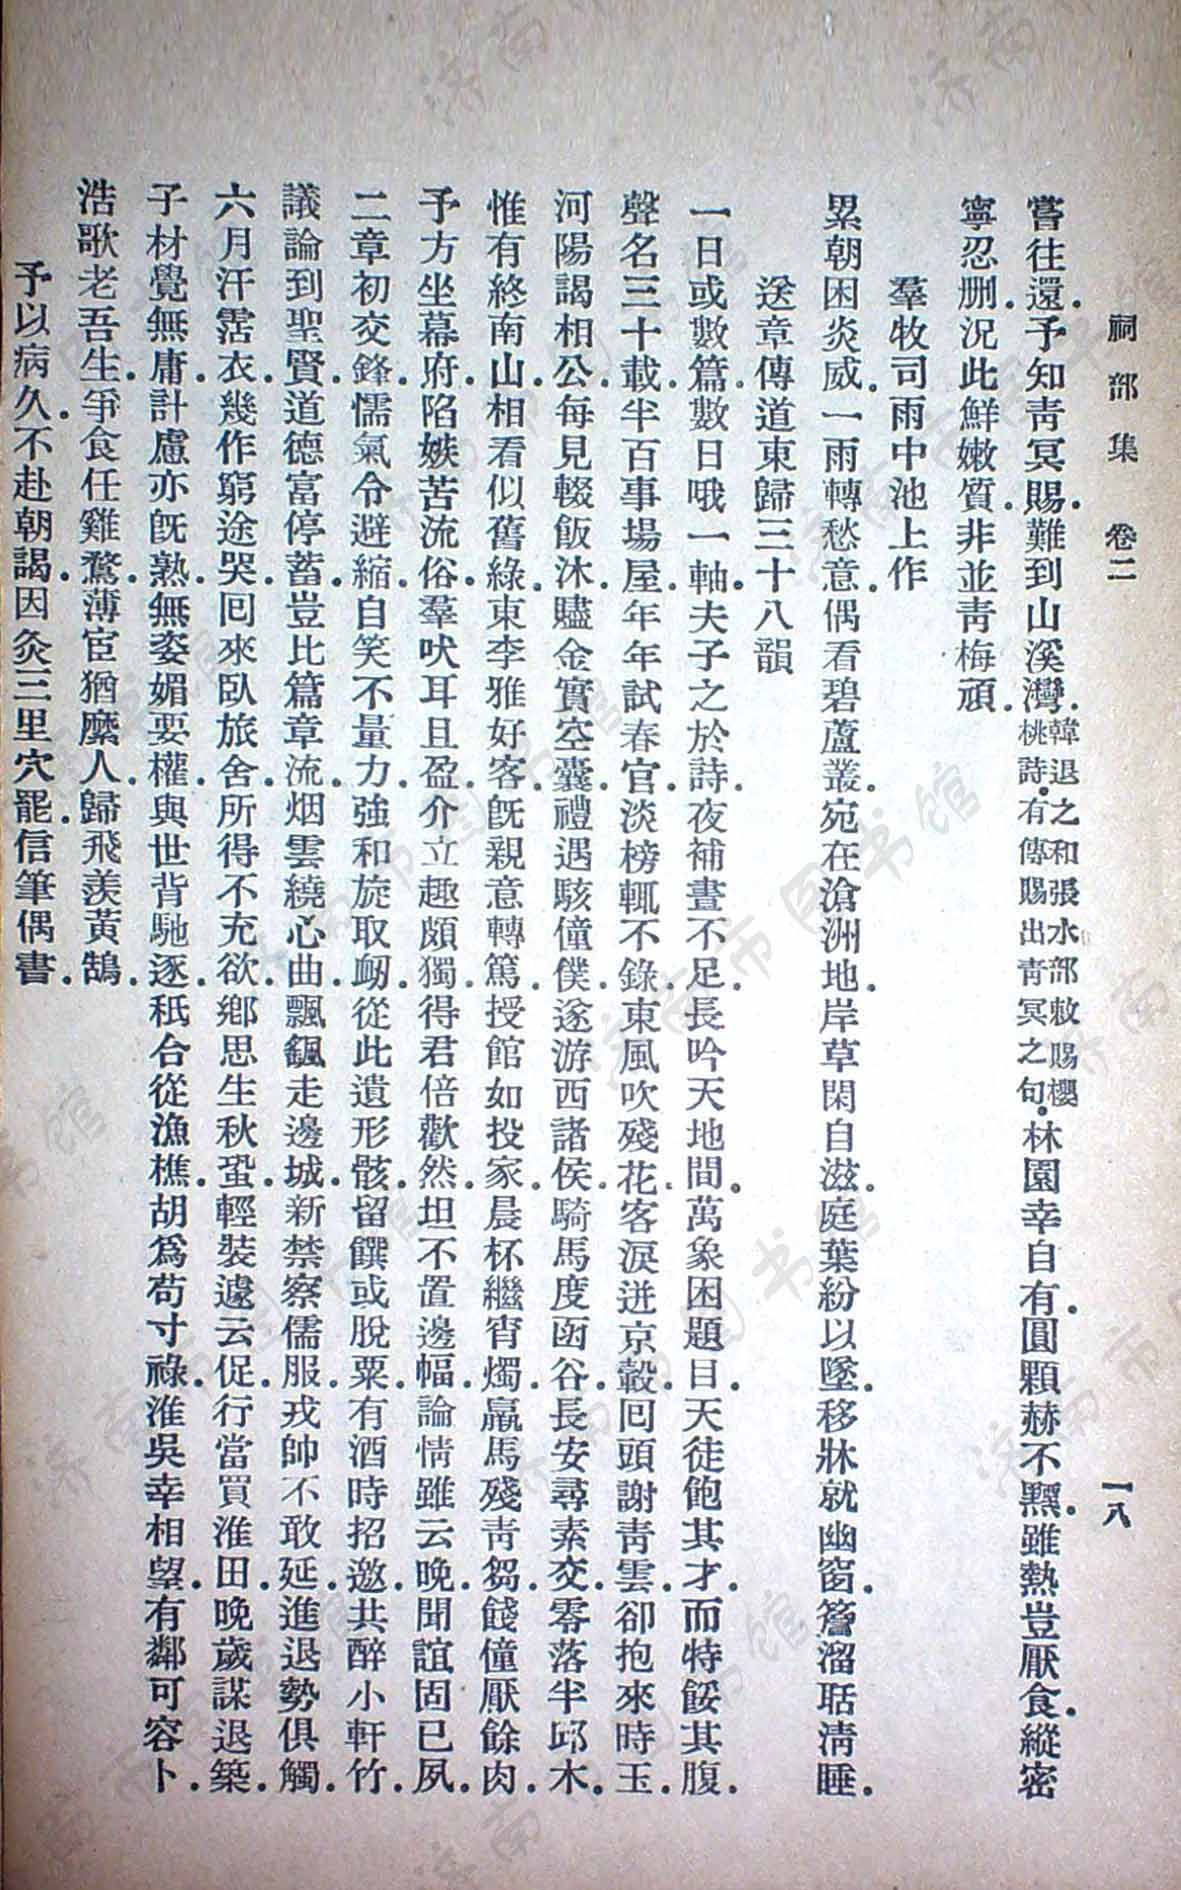 祠部集 卷二 一八
嘗往還．予知靑冥賜．難到山溪灣．韓退之和張水部敕賜櫻桃詩．有傳賜出靑冥之句．林園幸自有．圓顆赫不黰．雖熱豈厭食．縱密
寧忍删．況此鮮嫩質．非並靑梅頑．
羣牧司雨中池上作
累朝困炎威．一雨轉愁意．偶看碧蘆叢．宛在滄洲地．岸草閑自滋．庭葉紛以墜．移牀就幽窗．簷溜聒淸睡．
送章傳道東歸三十八韻
一日或數篇．數日哦一軸．夫子之於詩．夜補晝不足．長吟天地間．萬象困題目．天徒飽其才．而特餒其腹．
聲名三十載．半百事場屋．年年試春官．淡榜輒不錄．東風吹殘花．客淚迸京轂．回頭謝靑雲．卻抱來時玉．
河陽謁相公．每見輟飯沐．贐金實空囊．禮遇駭僮僕．遂游西諸侯．騎馬度函谷．長安尋素交．零落半邱木．
惟有終南山．相看似舊綠．東李雅好客．旣親意轉篤．授館如投家．晨杯繼宵燭．羸馬殘靑芻．餞僮厭餘肉．
予方坐幕府．陷嫉苦流俗．羣吠耳且盈．介立趣頗獨．得君倍歡然．坦不置邊幅．論情雖云晚．聞誼固已夙．
二章初交鋒．懦氣令避縮．自笑不量力．強和旋取衂．從此遺形骸．留饌或脫粟．有酒時招邀．共醉小軒竹．
議論到聖賢．道德富停蓄．豈比篇章流．烟雲繞心曲．飄飄走邊城．新禁察儒服．戎帥不敢延．進退勢俱觸．
六月汗霑衣．幾作窮途哭．回來臥旅舍．所得不充欲．鄉思生秋蛩．輕裝遽云促．行當買淮田．晚歲謀退築．
子材覺無庸．計慮亦旣熟．無姿媚要權．與世背馳逐．秖合從漁樵．胡爲苟寸祿．淮吳幸相望．有鄰可容卜．
浩歌老吾生．爭食任雞鶩．薄宦猶縻人．歸飛羨黃鵠．
予以病久．不赴朝謁．因灸三里穴罷．信筆偶書．